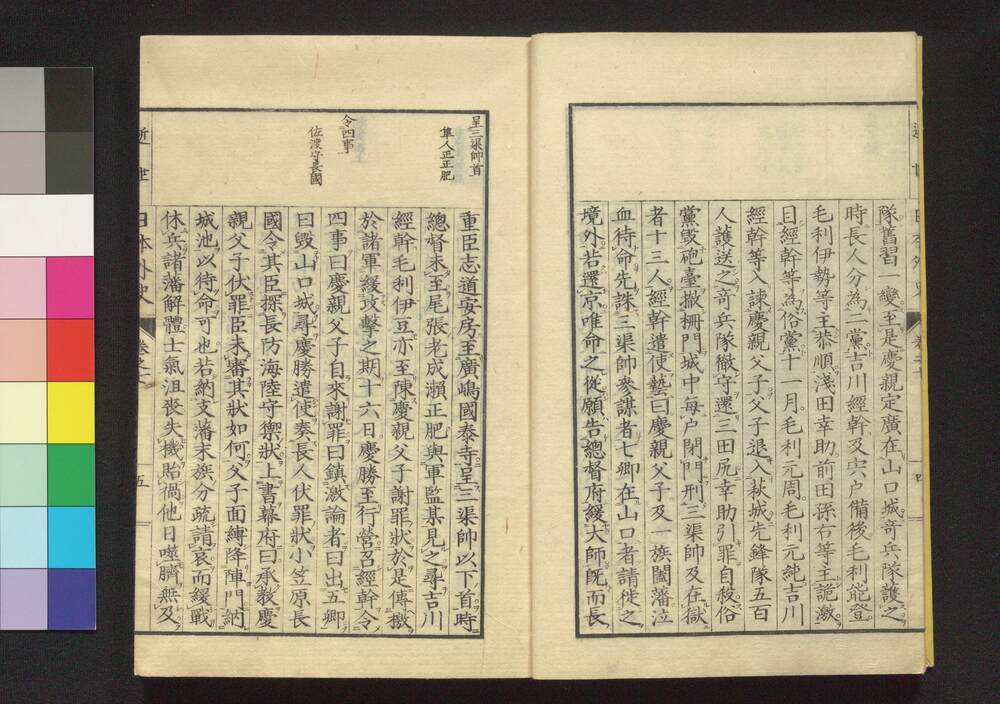 隊舊習 變至是慶親定廣在山口城奇兵隊護之
時長人分為二黨吉川經幹及宍户備後毛利能登
毛利伊勢等主恭順淺田幸助前田孫右等主詭激
目經幹等為俗黨十一月毛利元周毛利元純吉川
經幹等入諫慶親父子父子退入萩城先鋒隊五百
人護送之奇兵隊徹守還三田尻幸助引罪自殺俗
黨毀砲臺撤柵門城中每户閉門刑三渠帥及在獄
者十三人經幹遣使藝曰慶親父子及一族闔藩泣
血待命先誅三渠帥參謀者七卿在山口者請徙之
境外若還京唯命之從願告總督府緩大師既而長
四
呈三渠帥首
隼人正正肥
令四事
佐渡守長國
重臣志道安房至廣嶋國泰寺呈三渠帥以下首時
總督未至尾張老成瀨正肥與軍監某見之尋吉川
經幹毛利伊豆亦至陳慶親父子謝罪狀於是傳檄
於諸軍緩攻擊之期十六日慶勝至行營召經幹令
四事曰慶親父子自來謝罪曰鎮激論者曰出五卿
曰毀山口城尋慶勝遣使奏長人伏罪狀小笠原長
國令其臣探長防海陸守禦狀上書幕府曰承教慶
親父子伏罪臣未審其狀如何父子面縛降陣門納
城池以待命可也若納支藩末族分疏請哀而緩戰
休兵諸藩解體士氣沮喪失機貽禍他日噬臍無及
近世
日本外史
五